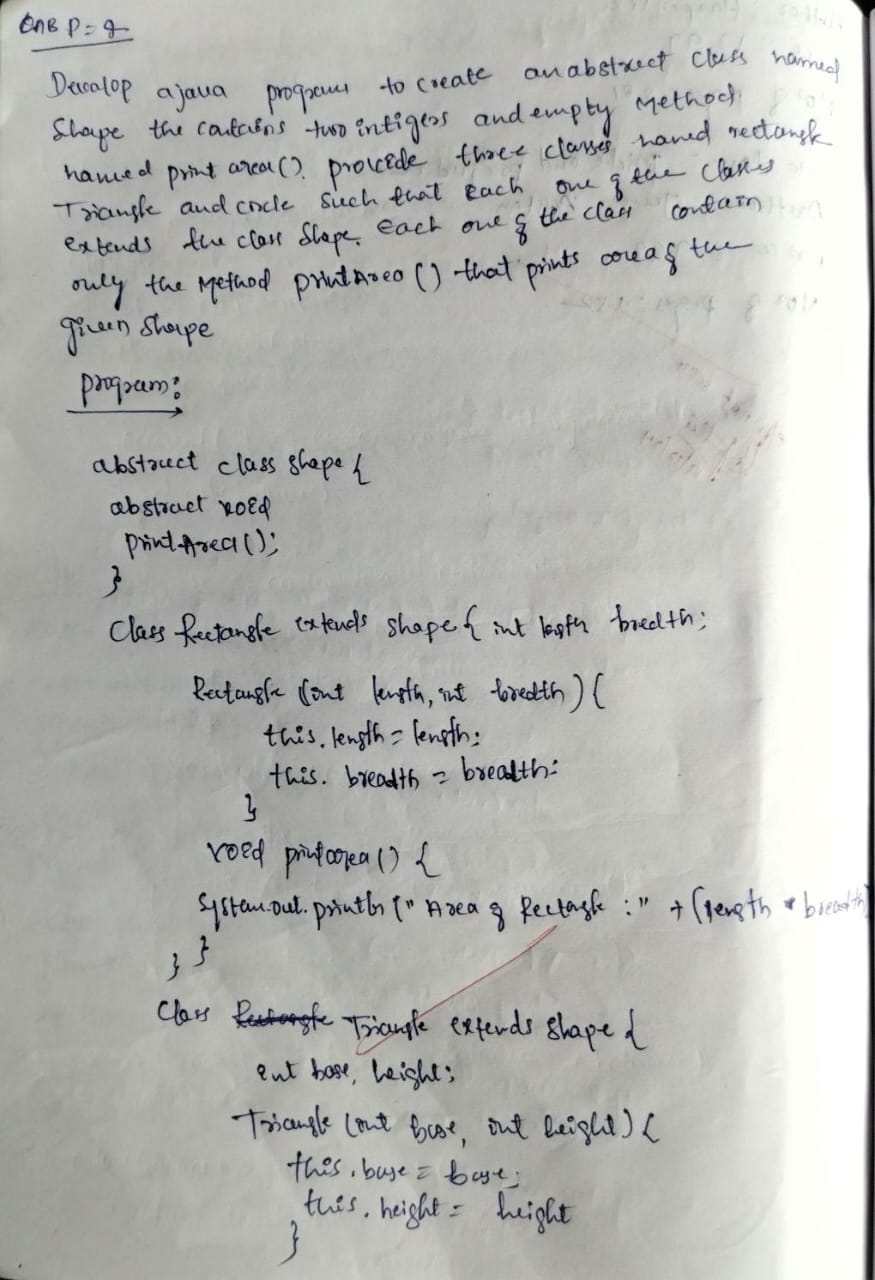 LAB P=9
Devalop a java program to create an abstract class named
Shape the contains two intigers and empty Method
named print area(). provide three classes named rectangle
Triangle and circle Such that each one of the classes
extends the class Shape. Each one of the class contain
only the Method printArea() that prints area of the
given Shape
program:
abstract class shape {
abstract void
printArea();
}
Class Rectangle extends shape { int length breadth;
Rectangle (int length, int bredth) {
this.length = length;
this. breadth = breadth;
}
void printarea() {
System.out.println (" Area of Rectangle :" + (length * breadth
} }
Class Triangle extends shape {
int base, height;
Triangle (int base, int height) {
this.base = base;
this.height = height
}